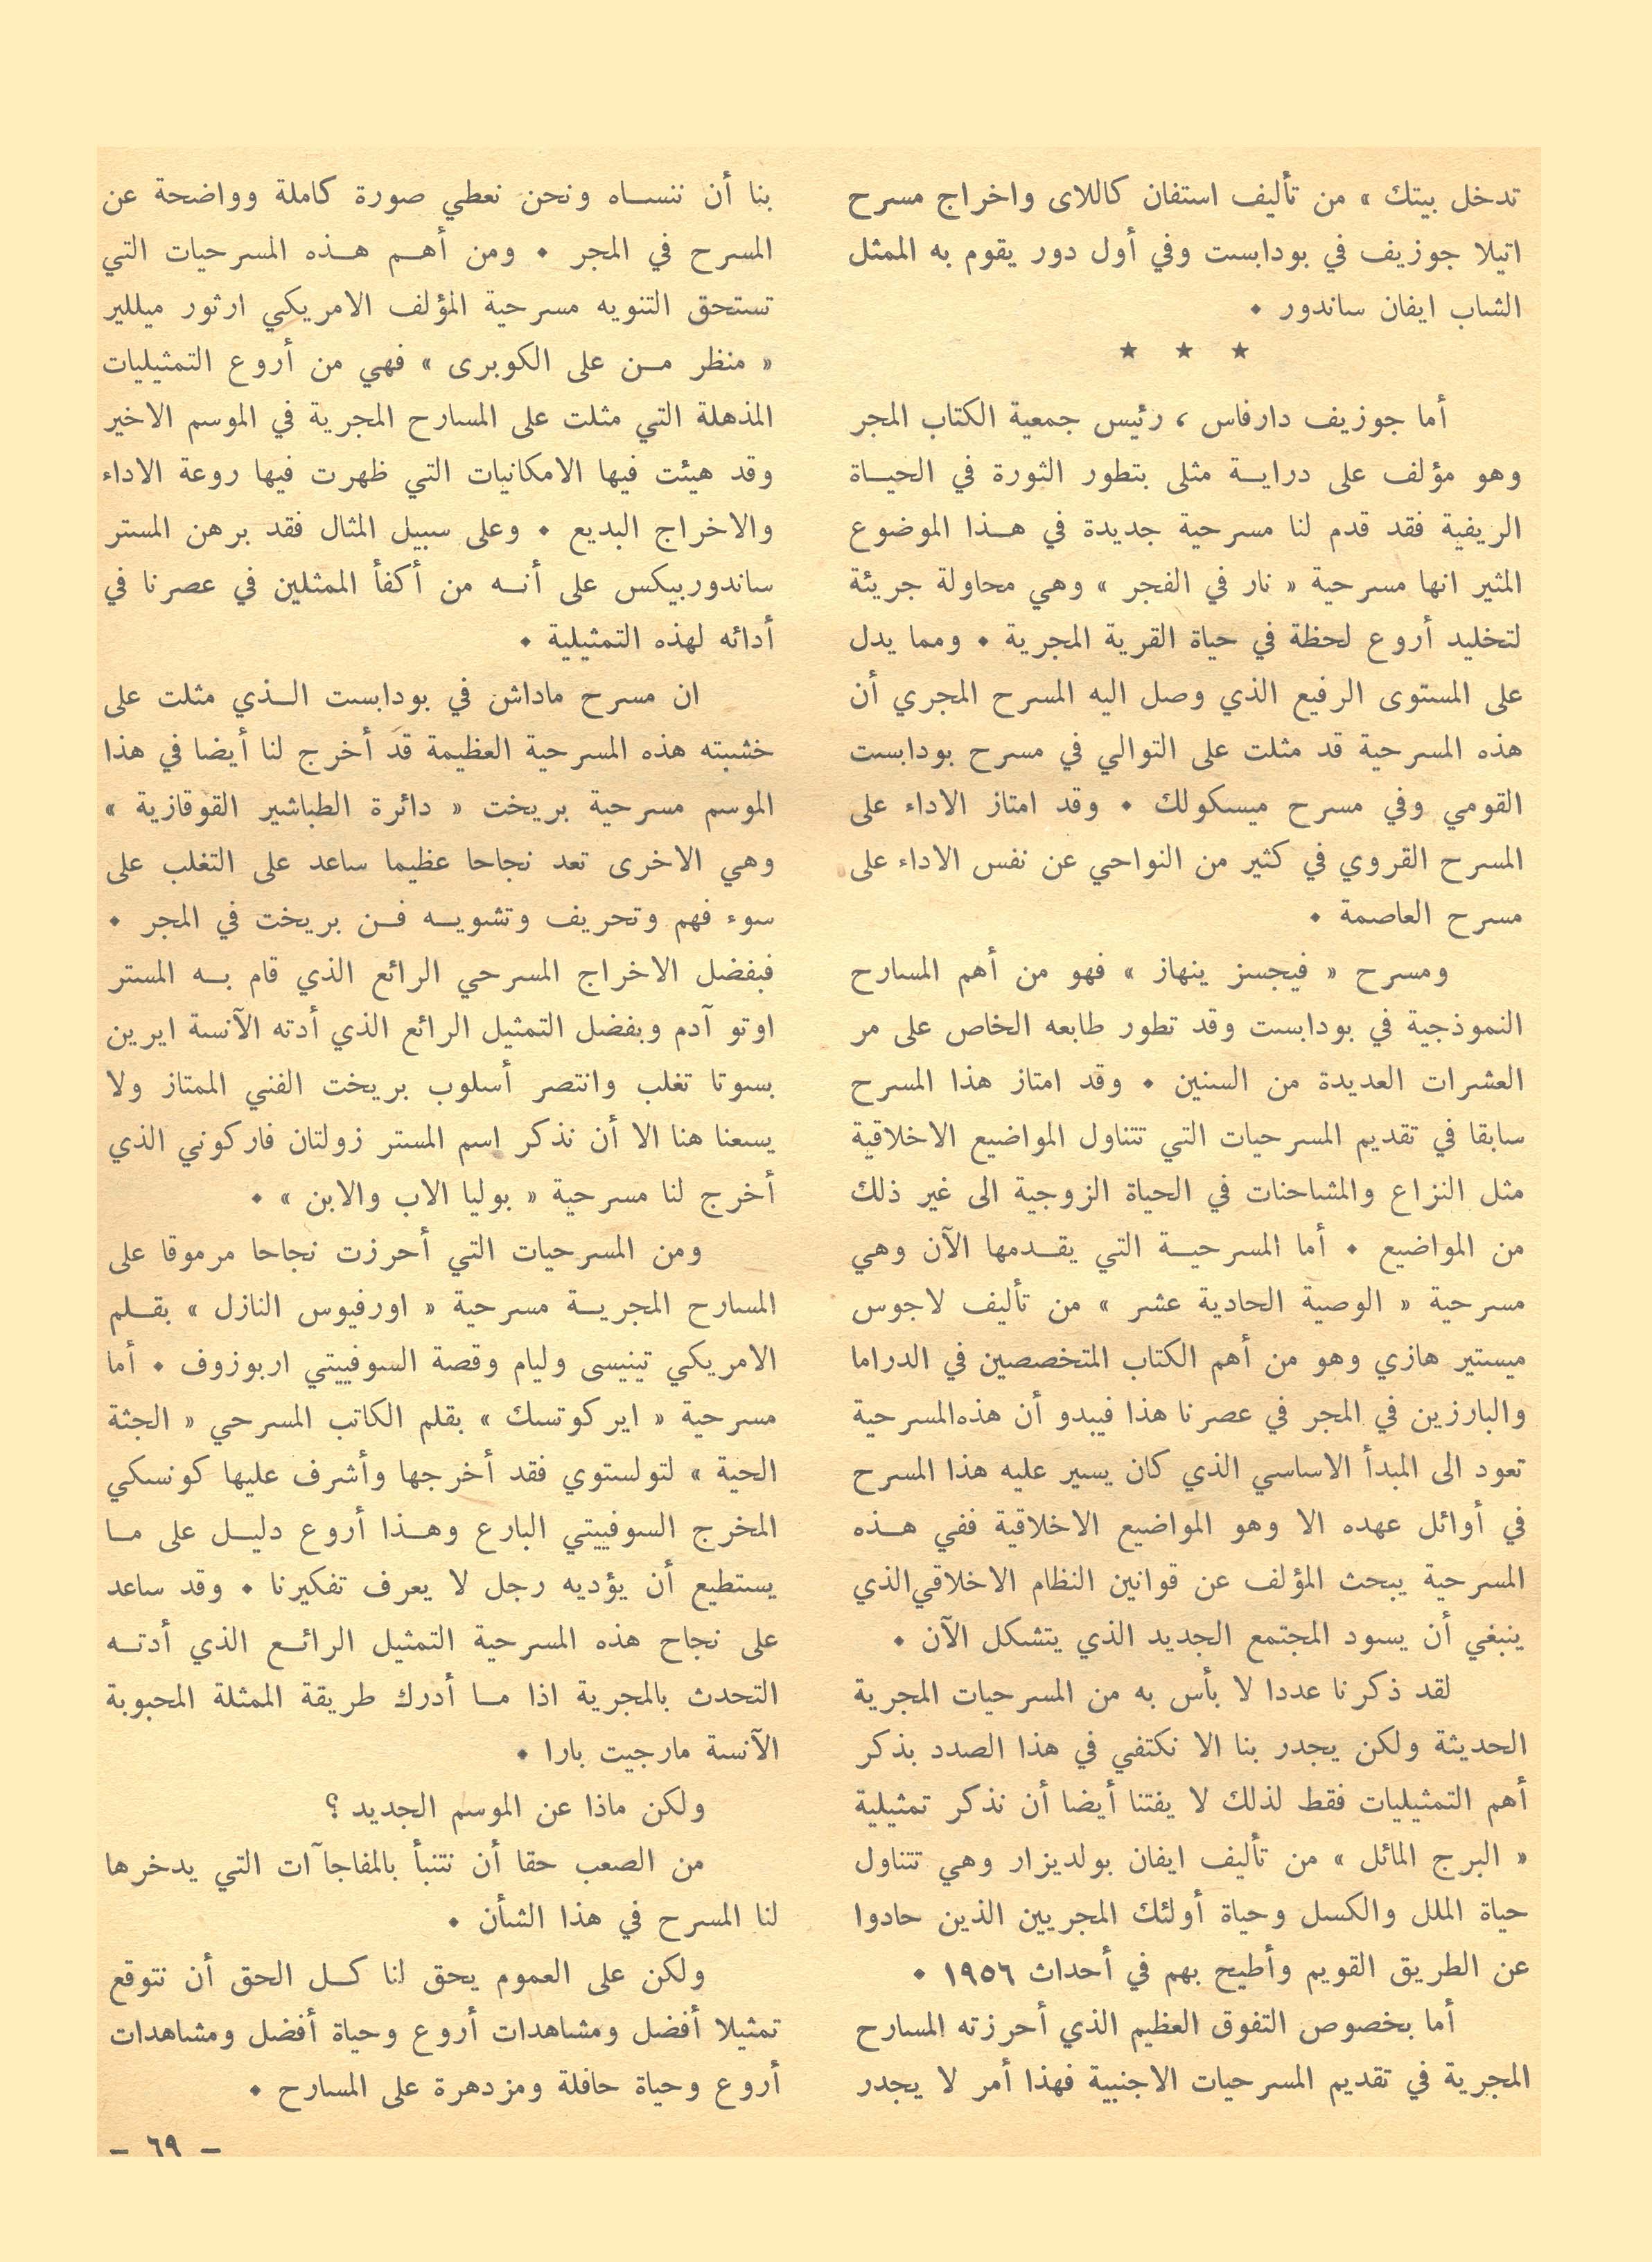 تدخل بيتك » من تأليف استفان كاللاى واخراج مسرح
اتيلا جوزيف في بودابست وفي أول دور يقوم به الممثل
الشاب ايفان ساندور ٠
★ ★ ★
أما جوزيف دارفاس ، رئيس جمعية الكتاب المجر
وهو مؤلف على دراية مثلى بتطور الثورة في الحياة
الريفية فقد قدم لنا مسرحية جديدة في هذا الموضوع
المثير انها مسرحية « نار في الفجر » وهي محاولة جريئة
لتخليد أروع لحظة في حياة القرية المجرية ٠ ومما يدل
على المستوى الرفيع الذي وصل اليه المسرح المجري أن
هذه المسرحية قد مثلت على التوالي في مسرح بودابست
القومي وفي مسرح ميسكولك ٠ وقد امتاز الاداء على
المسرح القروي في كثير من النواحي عن نفس الاداء على
مسرح العاصمة ٠
ومسرح « فيجسز ينهاز » فهو من أهم المسارح
النموذجية في بودابست وقد تطور طابعه الخاص على مر
العشرات العديدة من السنين ٠ وقد امتاز هذا المسرح
سابقا في تقديم المسرحيات التي تتناول المواضيع الاخلاقية
مثل النزاع والمشاحنات في الحياة الزوجية الى غير ذلك
من المواضيع ٠ أما المسرحية التي يقدمها الآن وهي
مسرحية « الوصية الحادية عشر » من تأليف لاجوس
ميستير هازي وهو من أهم الكتاب المتخصصين في الدراما
والبارزين في المجر في عصرنا هذا فيبدو أن هذه المسرحية
تعود الى المبدأ الاساسي الذي كان يسير عليه هذا المسرح
في أوائل عهده الا وهو المواضيع الاخلاقية ففي هذه
المسرحية يبحث المؤلف عن قوانين النظام الاخلاقي الذي
ينبغي أن يسود المجتمع الجديد الذي يتشكل الآن ٠
لقد ذكرنا عددا لا بأس به من المسرحيات المجرية
الحديثة ولكن يجدر بنا الا نكتفي في هذا الصدد بذكر
أهم التمثيليات فقط لذلك لا يفتنا أيضا أن نذكر تمثيلية
« البرج المائل » من تأليف ايفان بولديزار وهي تتناول
حياة الملل والكسل وحياة أولئك المجريين الذين حادوا
عن الطريق القويم وأطيح بهم في أحداث ١٩٥٦ ٠
أما بخصوص التفوق العظيم الذي أحرزته المسارح
المجرية في تقديم المسرحيات الاجنبية فهذا أمر لا يجدر
بنا أن ننساه ونحن نعطي صورة كاملة وواضحة عن
المسرح في المجر ٠ ومن أهم هذه المسرحيات التي
تستحق التنويه مسرحية المؤلف الامريكي ارثور ميللير
« منظر من على الكوبرى » فهي من أروع التمثيليات
المذهلة التي مثلت على المسارح المجرية في الموسم الاخير
وقد هيئت فيها الامكانيات التي ظهرت فيها روعة الاداء
والاخراج البديع ٠ وعلى سبيل المثال فقد برهن المستر
ساندوربيكس على أنه من أكفأ الممثلين في عصرنا في
أدائه لهذه التمثيلية ٠
ان مسرح ماداش في بودابست الذي مثلت على
خشبته هذه المسرحية العظيمة قد أخرج لنا أيضا في هذا
الموسم مسرحية بريخت « دائرة الطباشير القوقازية »
وهي الاخرى تعد نجاحا عظيما ساعد على التغلب على
سوء فهم وتحريف وتشويه فن بريخت في المجر ٠
فبفضل الاخراج المسرحي الرائع الذي قام به المستر
اوتو آدم وبفضل التمثيل الرائع الذي أدته الآنسة ايرين
بسوتا تغلب وانتصر أسلوب بريخت الفني الممتاز ولا
يسعنا هنا الا أن نذكر اسم المستر زولتان فاركوني الذي
أخرج لنا مسرحية « بوليا الاب والابن » ٠
ومن المسرحيات التي أحرزت نجاحا مرموقا على
المسارح المجرية مسرحية « اورفيوس النازل » بقلم
الامريكي تينيسى وليام وقصة السوفييتي اربوزوف ٠ أما
مسرحية « ايركوتسك » بقلم الكاتب المسرحي « الجثة
الحية » لتولستوي فقد أخرجها وأشرف عليها كونسكي
المخرج السوفييتي البارع وهذا أروع دليل على ما
يستطيع أن يؤديه رجل لا يعرف تفكيرنا ٠ وقد ساعد
على نجاح هذه المسرحية التمثيل الرائع الذي أدته
التحدث بالمجرية اذا ما أدرك طريقة الممثلة المحبوبة
الآنسة مارجيت بارا ٠
ولكن ماذا عن الموسم الجديد ؟
من الصعب حقا أن نتنبأ بالمفاجآت التي يدخرها
لنا المسرح في هذا الشأن ٠
ولكن على العموم يحق لنا كل الحق أن نتوقع
تمثيلا أفضل ومشاهدات أروع وحياة أفضل ومشاهدات
أروع وحياة حافلة ومزدهرة على المسارح ٠
– ٦٩ –